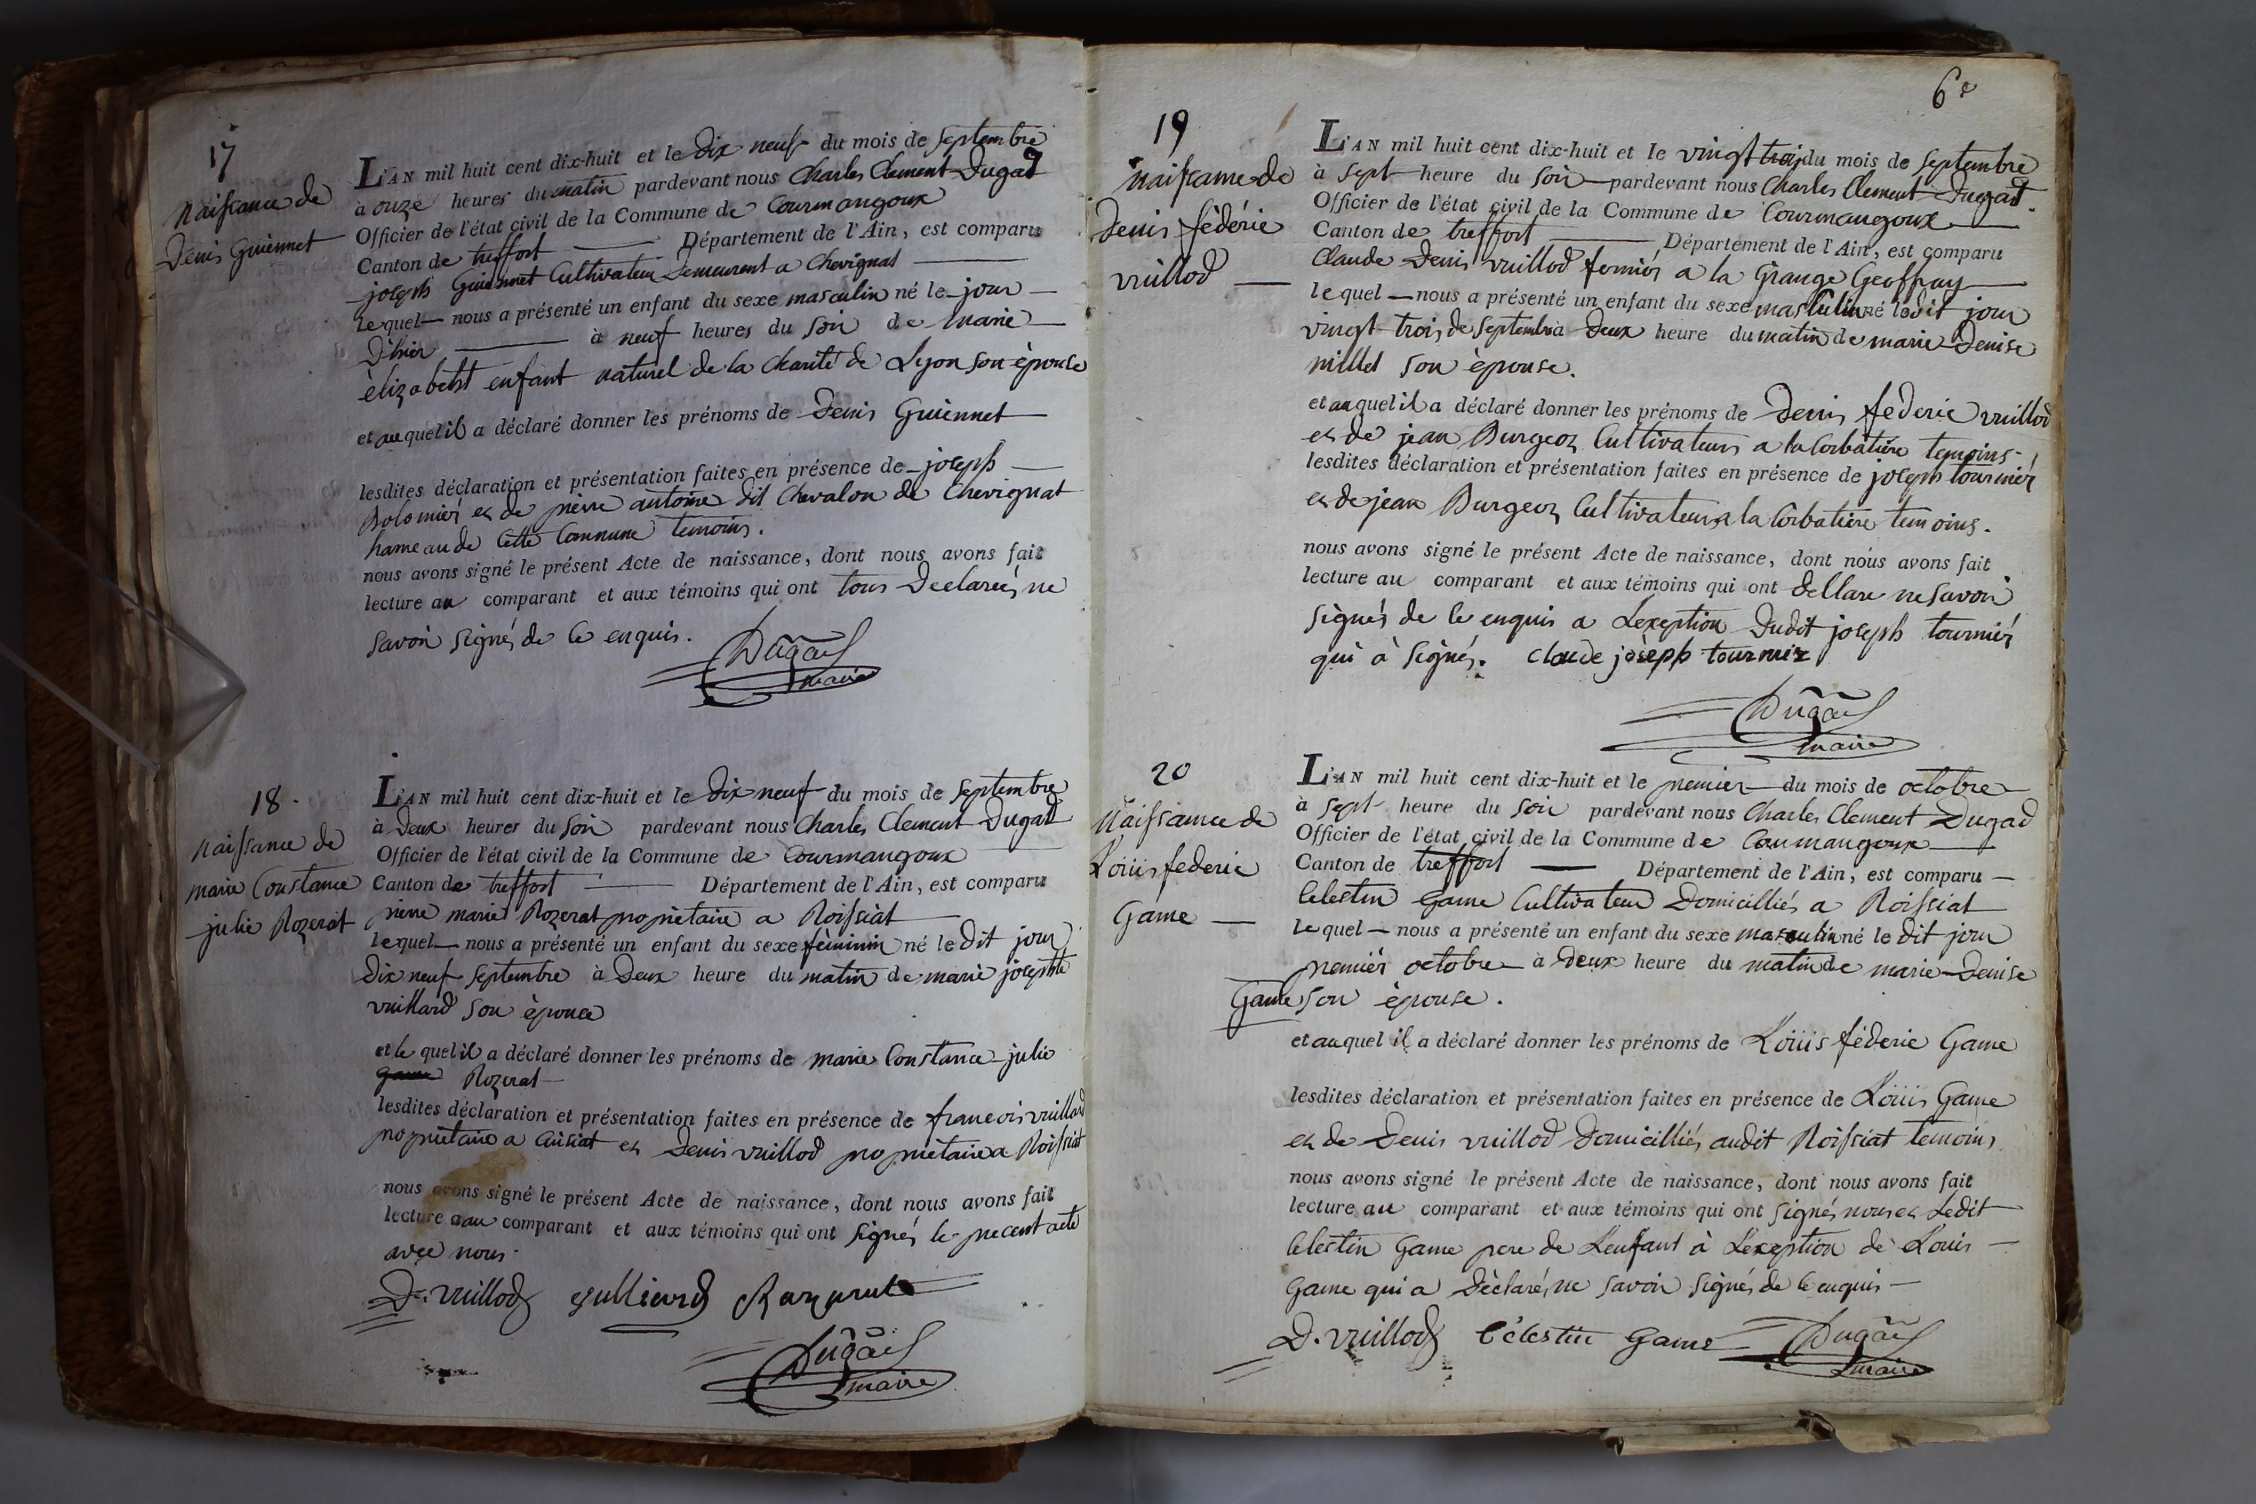 17
Naissance de
Denis Guiennet
L'AN mil huit cent dix-huit et le dix neuf du mois de Septembre
à onze heures du matin pardevant nous Charles Clement Dugad
Officier de l'état civil de la Commune de Courmangoux
Canton de treffort Département de l'Ain, est comparu
joseph Guiennet Cultivateur Demeurent a Chevignat
lequel nous a présenté un enfant du sexe masculin né le jour
D'hier à neuf heures du Soir de marie
élizabeht enfant naturel de la Charité de Lyon son épouse
et auquel il a déclaré donner les prénoms de Denis Guiennet
lesdites déclaration et présentation faites en présence de joseph
Bolomiér et de pierre antoine dit Chevalon de Chevignat
hameau de Cette Commune temoins.
nous avons signé le présent Acte de naissance, dont nous avons fait
lecture au comparant et aux témoins qui ont tous Declareés ne
Savoir signés de Ce enquis.
Dugad
maire
18.
Naissance de
marie Constance
julie Rozerat
L'AN mil huit cent dix-huit et le Dix neuf du mois de Septembre
à Deux heures du Soir pardevant nous Charles Clement Dugad
Officier de l'état civil de la Commune de Courmangoux
Canton de treffort Département de l'Ain, est comparu
pierre marie Rozerat propriétaire a Roissiat
lequel nous a présenté un enfant du sexe féminin né le Dit jour
Dix neuf Septembre à Deux heure du matin de marie josephte
vuillard Son épouce
et le quel il a déclaré donner les prénoms de marie Constance julie
Game Rozerat
lesdites déclaration et présentation faites en présence de francois vuillard
propriétaire a et Denis vuillod propriétaire a Roissiat
nous avons signé le présent Acte de naissance, dont nous avons fait
lecture au comparant et aux témoins qui ont signés le precent acte
avec nous.
D. vuillod
Dugad
maire
6e
19
Naissance de
Denis féderic
vuillod
L'AN mil huit cent dix-huit et le vingt trois du mois de Septembre
à Sept heure du Soir pardevant nous Charles Clement Dugad.
Officier de l'état civil de la Commune de Courmangoux
Canton de treffort Département de l'Ain, est comparu
Claude Denis vuillod fermiér a la Grange Geoffray
lequel nous a présenté un enfant du sexe masculin né le dit jour
vingt trois de Septembre à Deux heure du matin de marie Denise
millet son épouse.
et auquel il a déclaré donner les prénoms de Denis federic vuillod
et de jean Burgeoz Cultivateurs a la Corbatiére temoins.
lesdites déclaration et présentation faites en présence de joseph tourniér
et de jean Burgeoz Cultivateurs a la Corbatiere temoins.
nous avons signé le présent Acte de naissance, dont nous avons fait
lecture au comparant et aux témoins qui ont dellare ne savoir
signés de Ce enquis a L'exeption Dudit joseph tourniér
qui à signés. Claude joseph tournier
Dugad
maire
20
Naissance de
Loüis federic
Game
L'AN mil huit cent dix-huit et le premier du mois de octobre
à Sept heure du Soir pardevant nous Charles Clement Dugad
Officier de l'état civil de la Commune de Courmangoux
Canton de treffort Département de l'Ain, est comparu
Celestin Game Cultivateur Domicilliés a Roissiat
lequel nous a présenté un enfant du sexe masculin né le dit jour
premiér octobre à deux heure du matin de marie Denise
Game son épouse.
et auquel il a déclaré donner les prénoms de Loüis féderic Game
lesdites déclaration et présentation faites en présence de Loüis Game
et de Denis vuillod Domicilliés audit Roissiat temoins
nous avons signé le présent Acte de naissance, dont nous avons fait
lecture au comparant et aux témoins qui ont signés nous et Ledit
Celestin Game pere de L'enfant à L'exeption de Louis
Game qui a Déclarés ne savoir signés de Ce enquis
D. vuillod Célestin Game Dugad
maire